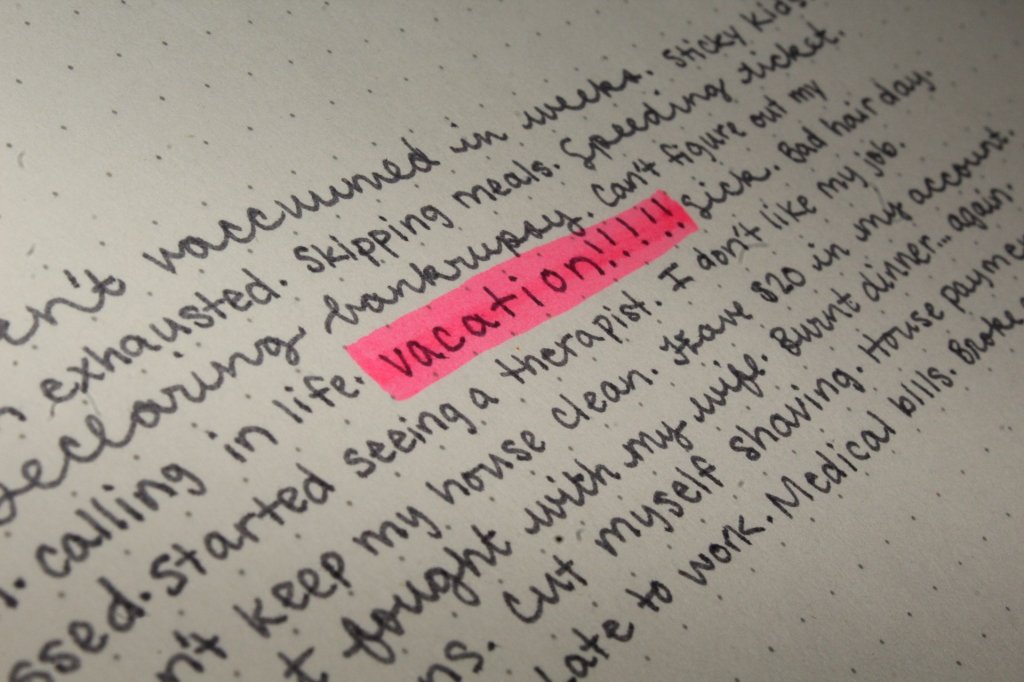 en't vaccumed in weeks. Sticky Kids
exhausted. Skipping meals. Speeding ticket.
Declaring bankrupsy. Can't figure out my
calling in life. vacation!!!!!! Sick. Bad hair day.
ssed. started seeing a therapist. I don't like my job.
n't keep my house clean. Have $20 in my account.
t fought with my wife. Burnt dinner... again.
ns. Cut myself shaving. House payme
Late to work. Medical bills. Broke